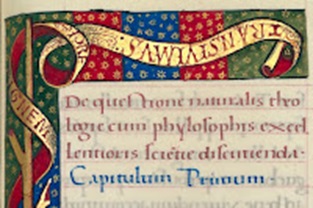 TRANSIVIMVS
IGNEM
De questione naturalis theo
logie cum phylosophis excel
lentioris sciētie discutienda·
Capitulum Primum